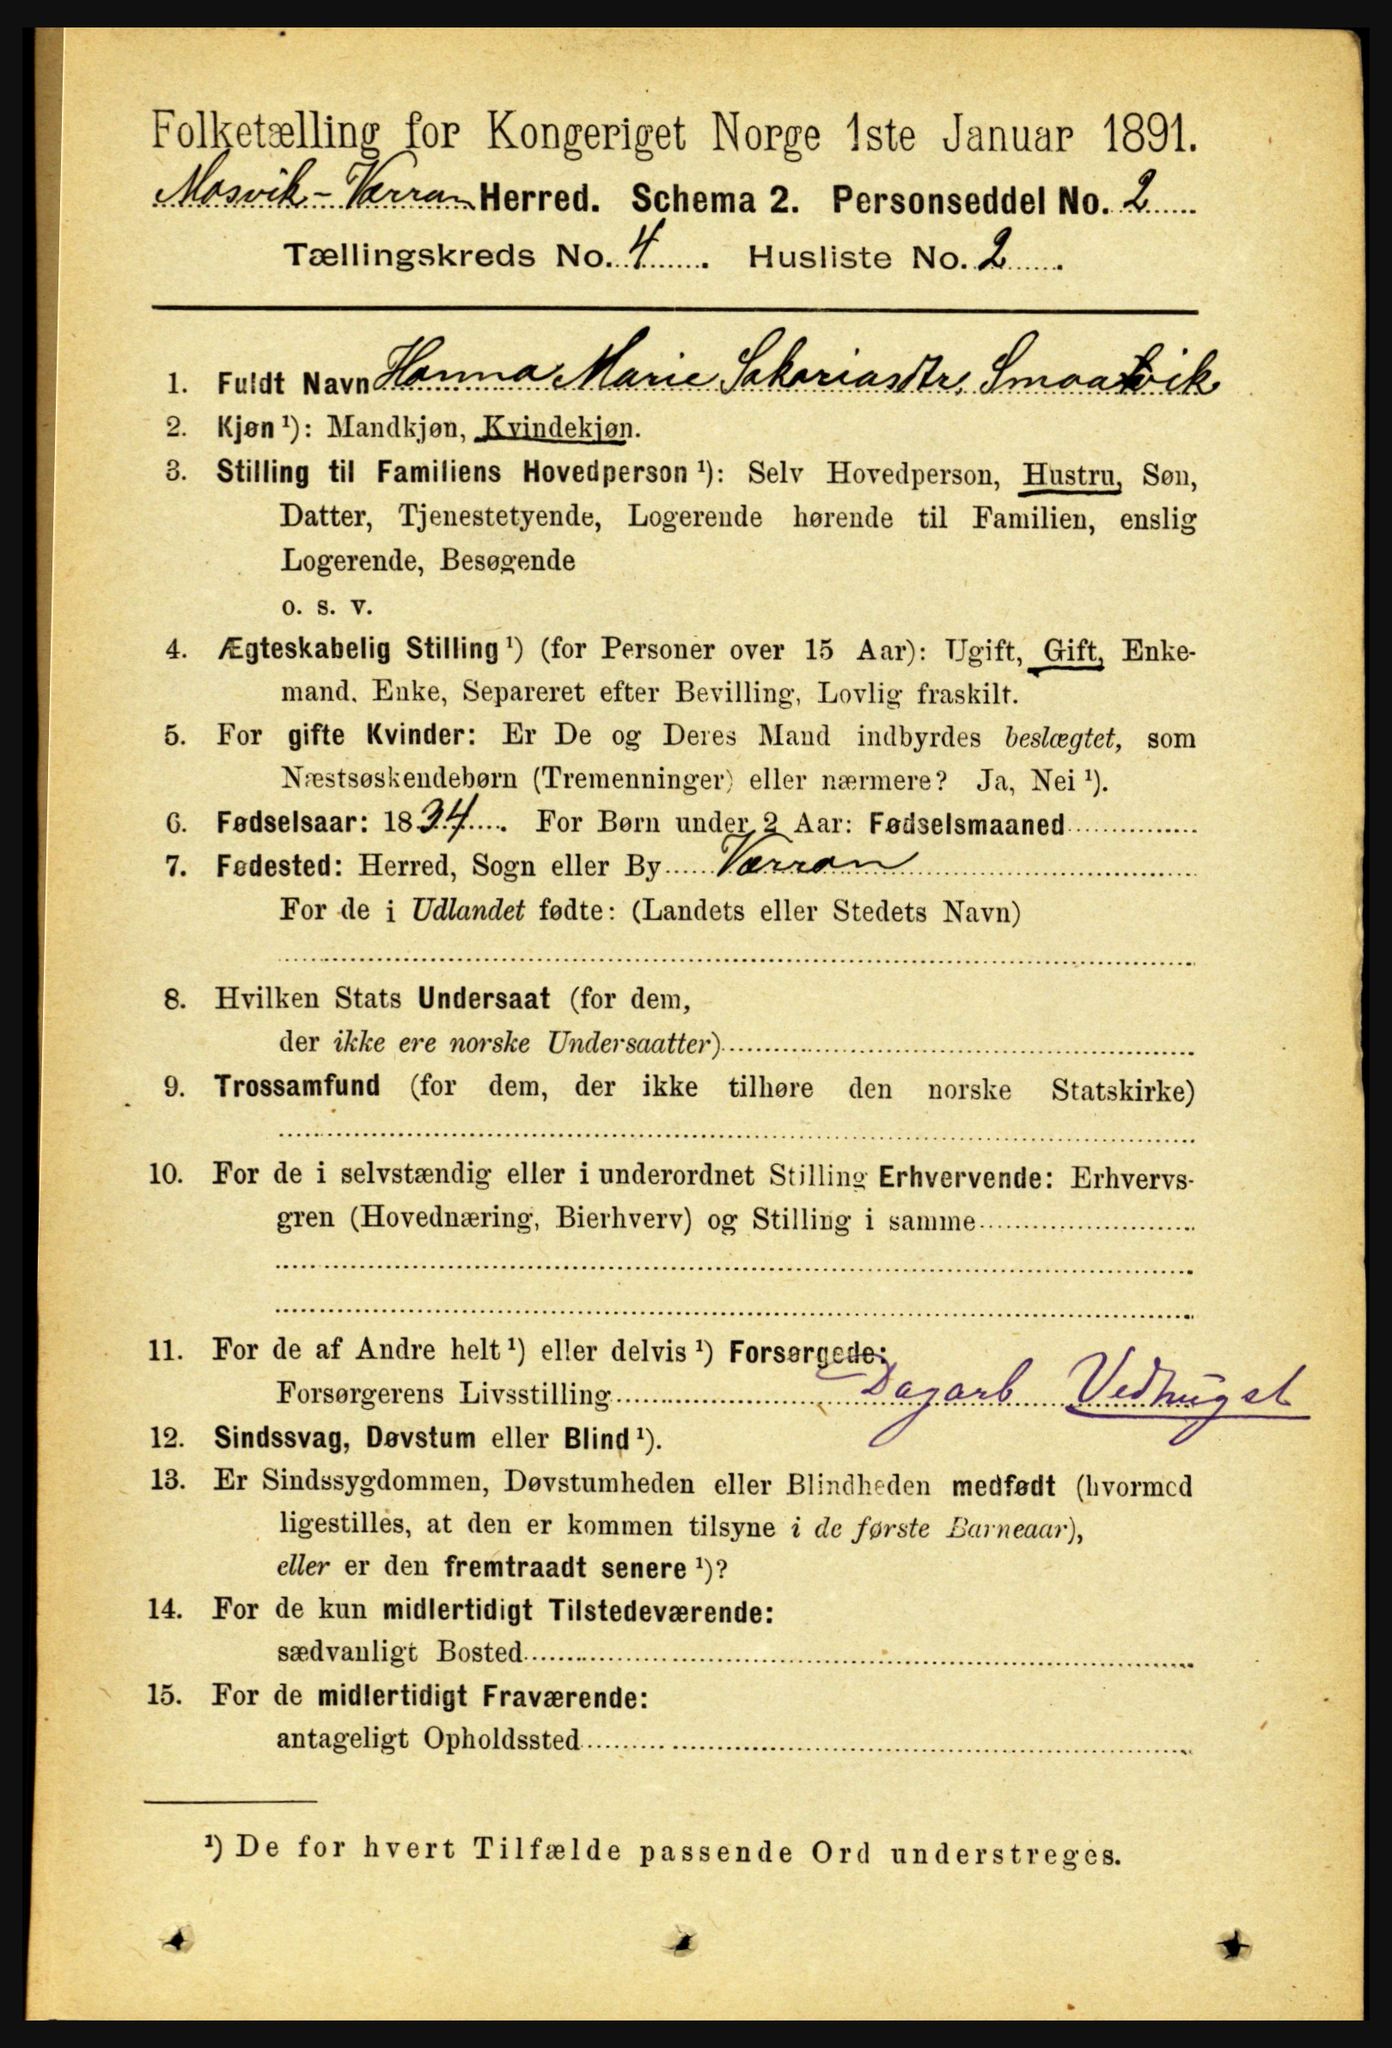 Folketælling for Kongeriget Norge 1ste Januar 1891.
Mosvik - Værran Herred. Schema 2. Personseddel No. 2
Tællingskreds No. 4. Husliste No. 2.
1. Fuldt Navn Hanna Marie Sakariasdtr. Smaavik
2. Kjøn ¹): Mandkjøn, Kvindekjøn.
3. Stilling til Familiens Hovedperson ¹): Selv Hovedperson, Hustru, Søn,
Datter, Tjenestetyende, Logerende hørende til Familien, enslig
Logerende, Besøgende
o. s. v.
4. Ægteskabelig Stilling ¹) (for Personer over 15 Aar): Ugift, Gift, Enke-
mand, Enke, Separeret efter Bevilling, Lovlig fraskilt.
5. For gifte Kvinder: Er De og Deres Mand indbyrdes beslægtet, som
Næstsøskendebørn (Tremenninger) eller nærmere? Ja, Nei ¹).
6. Fødselsaar: 1834. For Børn under 2 Aar: Fødselsmaaned
7. Fødested: Herred, Sogn eller By Værran
For de i Udlandet fødte: (Landets eller Stedets Navn)
8. Hvilken Stats Undersaat (for dem,
der ikke ere norske Undersaatter)
9. Trossamfund (for dem, der ikke tilhøre den norske Statskirke)
10. For de i selvstændig eller i underordnet Stilling Erhvervende: Erhvervs-
gren (Hovednæring, Bierhverv) og Stilling i samme
11. For de af Andre helt ¹) eller delvis ¹) Forsørgede:
Forsørgerens Livsstilling Dagarb Vedhugst
12. Sindssvag, Døvstum eller Blind ¹).
13. Er Sindssygdommen, Døvstumheden eller Blindheden medfødt (hvormed
ligestilles, at den er kommen tilsyne i de første Barneaar),
eller er den fremtraadt senere ¹)?
14. For de kun midlertidigt Tilstedeværende:
sædvanligt Bosted
15. For de midlertidigt Fraværende:
antageligt Opholdssted
¹) De for hvert Tilfælde passende Ord understreges.